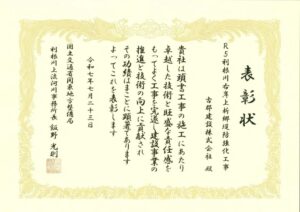 表彰状
R5利根川右岸上新郷堤防強化工事
古郡建設株式会社 殿
貴社は頭書工事の施工にあたり
卓越した技術と旺盛な責任感を
もってよく工事を完遂し建設事業の
推進と技術の向上に貢献され
その功績はまことに顕著であります
よってこれを表彰します
令和七年七月二十三日
国土交通省関東地方整備局
利根川上流河川事務所長 飯野 光則